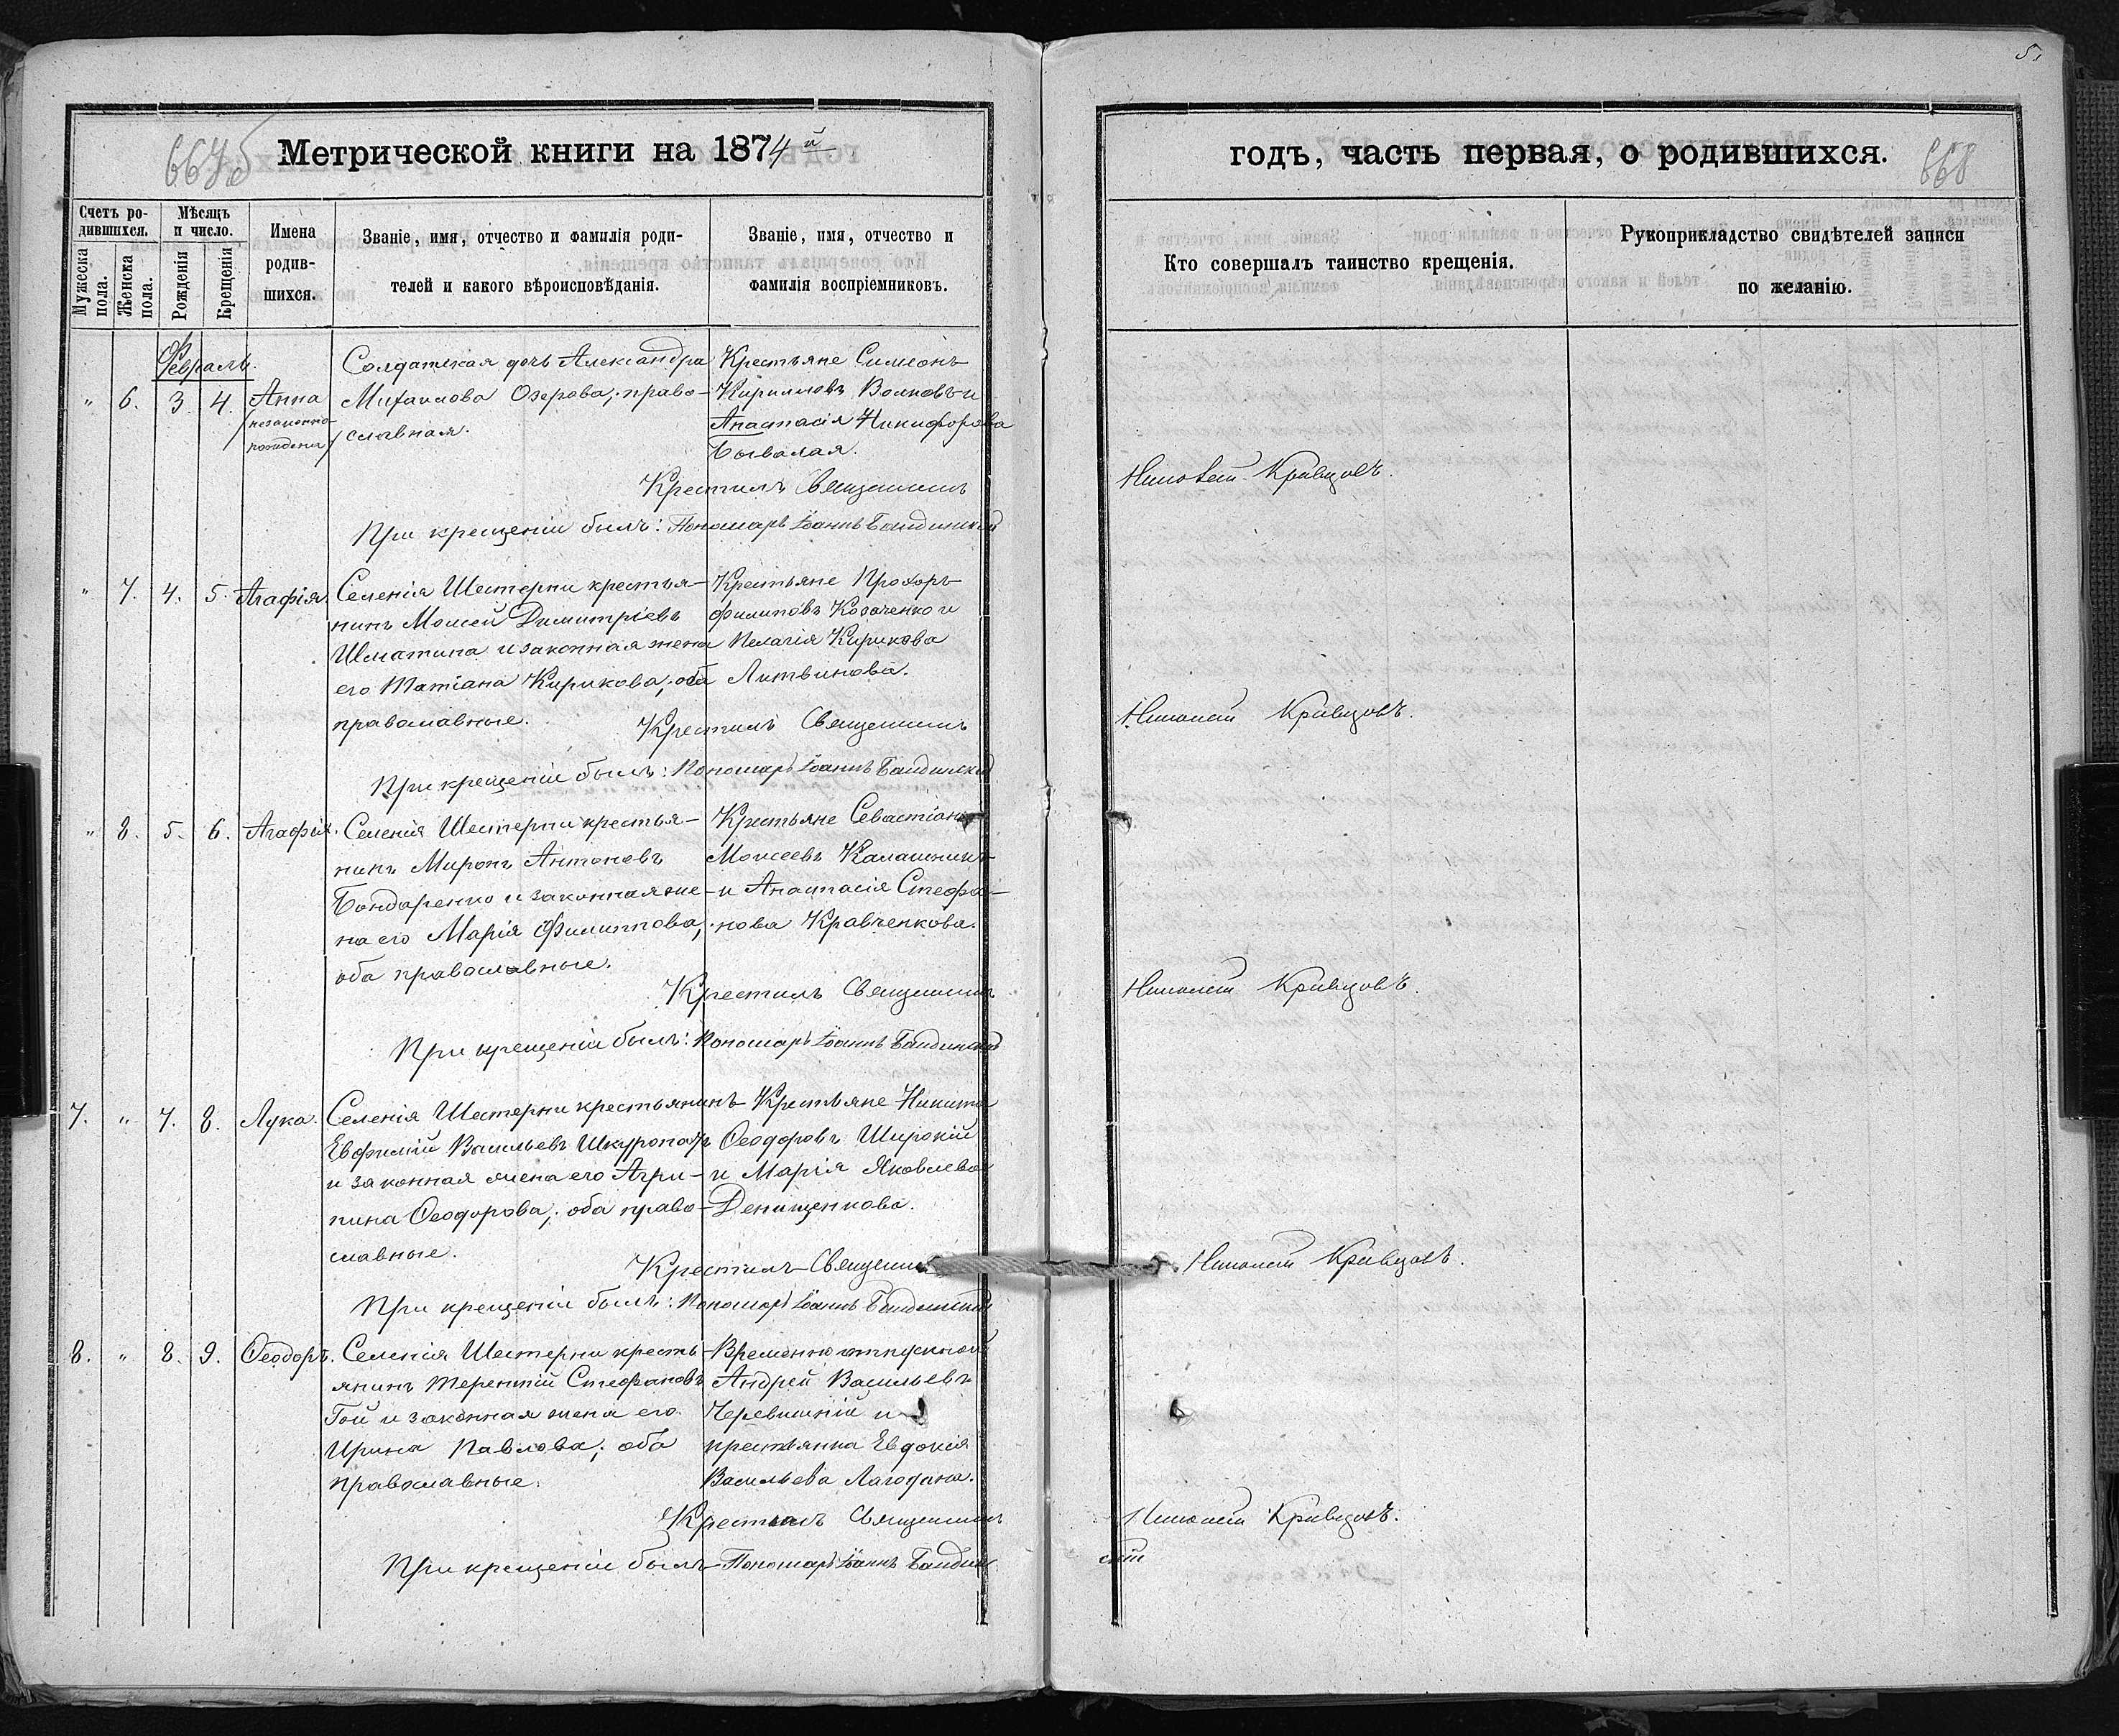 5.
667 об
Метрической книги на 1874й
годъ, часть первая, о родившихся.
668
Счетъ родившихся.
Мѣсяцъ и число.
Мужеска пола.
Женска пола.
Рожденія
Крещенія
Имена родившихся.
Званіе, имя, отчество и фамилія родителей и какого вѣроисповѣданія.
Званіе, имя, отчество и фамилія воспріемниковъ.
Кто совершалъ таинство крещенія.
Рукоприкладство свидѣтелей записи по желанію.
Февраль.
" 6. 3. 4. Анна
(незаконно-
рожденна)
Солдатская дочь Александра
Михаилова Озерова, право-
славная.
Крестьяне Симеонъ
Кирилловъ Волковъ и
Анастасія Никифорова
Бывалая.
Крестилъ Священникъ
Николай Кривцовъ.
При крещеніи былъ: Пономарь Іоаннъ
" 7. 4. 5. Агафія.
Селенія Шестерни крестья-
нинъ Моисей Димитріевъ
Шматина и законная жена
его Татіана Кирикова, оба
православные.
Крестьяне Прохоръ
Филиповъ Козаченко и
Пелагія Кирикова
Литвинова.
Крестилъ Священникъ
Николай Кривцовъ.
При крещеніи былъ: Пономарь Іоаннъ
" 8. 5. 6. Агафія.
Селенія Шестерни крестья-
нинъ Миронъ Антоновъ
Бондаренко и законная же-
на его Марія Филиппова,
оба православные.
Крестьяне Севастіанъ
Моисеевъ Калашникъ
и Анастасія Стефа-
нова Кравченкова.
Крестилъ Священникъ
Николай Кривцовъ.
При крещеніи былъ: Пономарь Іоаннъ
7. " 7. 8. Лука.
Селенія Шестерни крестьянинъ
Евфимій Васильевъ Шкуропатъ
и законная жена его Агри-
пина Ѳеодорова; оба право-
славные.
Крестьяне Никита
Ѳеодоровъ Широкій
и Марія Яковлева
Денищенкова.
Крестилъ Священникъ
Николай Кривцовъ.
При крещеніи былъ: Пономарь Іоаннъ
8. " 8. 9. Ѳеодоръ.
Селенія Шестерни кресть-
янинъ Терентій Стефановъ
Гой и законная жена его
Ирина Павлова; оба
православные.
Временно отпускной
Андрей Васильевъ
и
крестьянка Евдокія
Васильева Лагодина.
Крестилъ Священникъ
Николай Кривцовъ.
При крещеніи былъ Пономарь Іоаннъ